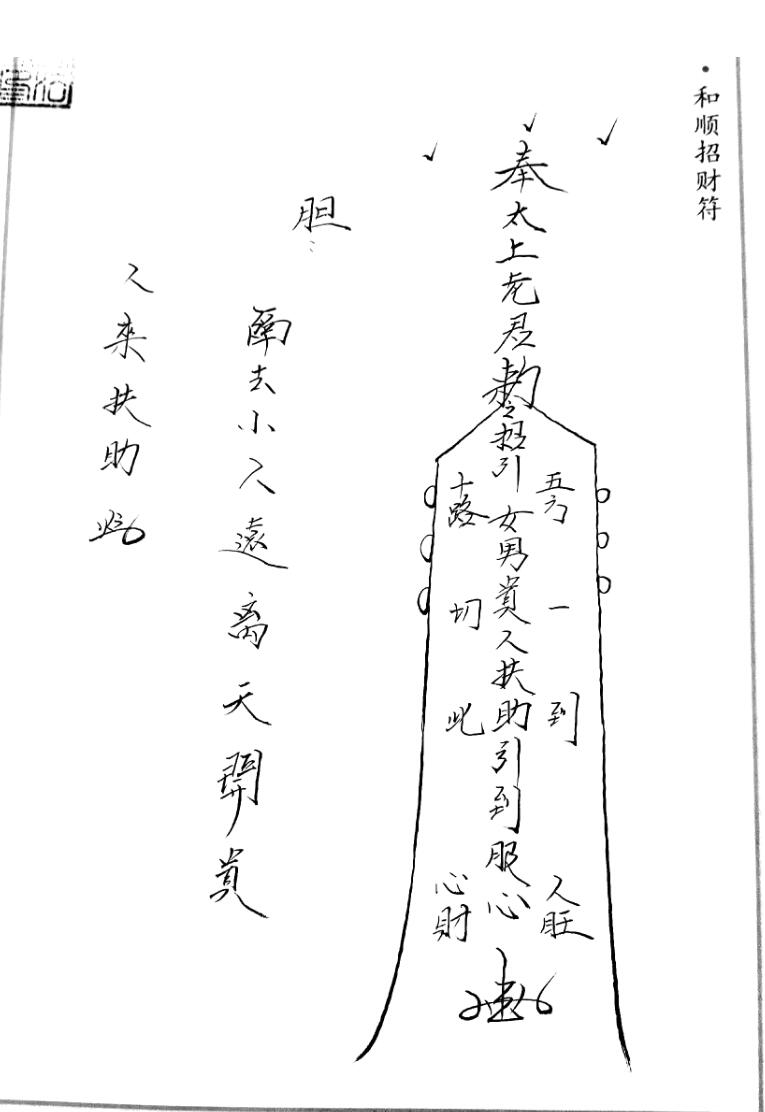 ·和顺招财符
奉太上老君勅令招引女男貴人扶助引到服心
五方一到人旺
十路切此心財
胆
去小人遠离天開貴
人来扶助